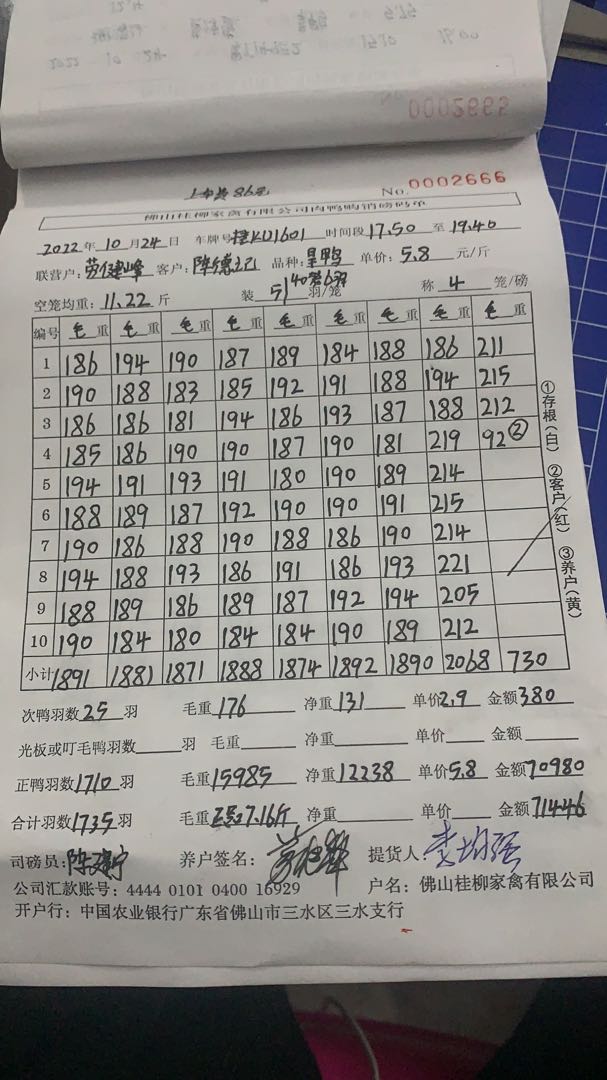 0002665
上车费86元 No. 0002666
佛山桂柳家禽有限公司肉鸭鸭销磅码单
2022年10月24日 车牌号 KU1601 时间段17.50至19.40
联营户: 劳健峰 客户: 陈德记 品种: 旱鸭 单价: 5.8 元/斤
空笼均重: 11.22 斤 装 5 羽/笼 称 4 笼/磅
编号 毛重 毛重 毛重 毛重 毛重 毛重 毛重 毛重 毛重
1 186 194 190 187 189 184 188 186 211
2 190 188 183 185 192 191 188 194 215
3 186 186 181 194 186 193 187 188 212
4 185 186 190 190 187 190 181 219 92②
5 194 191 193 191 180 190 189 214
6 188 189 187 192 190 190 191 215
7 190 186 188 190 188 186 190 214
8 194 188 193 186 191 186 193 221
9 188 189 186 189 187 192 194 205
10 190 184 180 184 184 190 189 212
小计 1891 1881 1871 1888 1874 1892 1890 2068 730
①存根(白) ②客户(红) ③养户(黄)
次鸭羽数25羽 毛重176 净重131 单价2.9 金额380
光板或叮毛鸭羽数 羽 毛重 净重 单价 金额
正鸭羽数1710羽 毛重15985 净重12238 单价5.8 金额70980
合计羽数1735羽 毛重 7.16斤 净重 单价 金额71446
司磅员: 养户签名: 提货人:
公司汇款账号: 4444 0101 0400 16929 户名: 佛山桂柳家禽有限公司
开户行: 中国农业银行广东省佛山市三水区三水支行